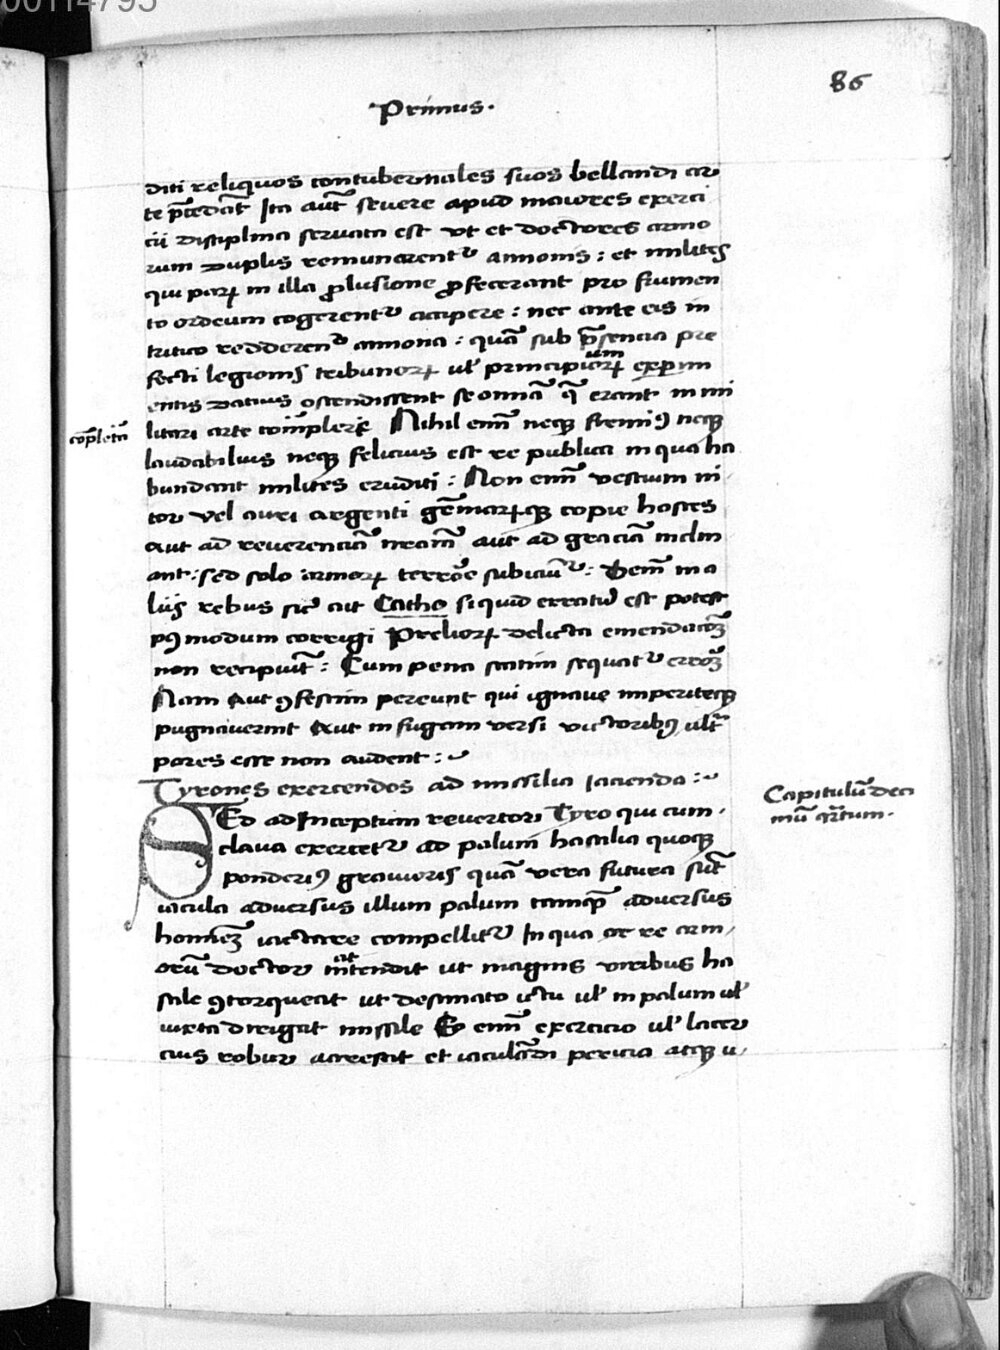 00114795
86
Primus.
diti reliquos contubernales suos bellandi ar
te p̄cedāt Ita aut̄ severe apud maiores exerci
cii disciplina servata est vt et doctores armo
rum duplis remunarent᷑ annonis : et milites
qui paꝝ in illa ꝓlusione ꝓfecerant pro frumen
to ordeum cogerent᷑ accipere : nec ante eis in
tritico redderen᷑ annona : quā sub p̄sencia pre
fecti legionis tribunoꝝ ul̄ principioꝝ um experim
entis datius ostendissent se omnā q̄ erant in mi
litari arte cōmplere Nihil enī neqꝫ firmiꝰ neqꝫ
complētā
laudabilius neqꝫ felicius est re publica in qua ha
bundant milites eruditi : Non enī vestium ni
tor vel auri argenti gēmarꝝqꝫ copie hostes
aut ad reverenciā nr̄am aut ad graciā inclin
ant : sed solo armoꝝ terrōe subiciūt᷑ : Dem̄ in a
liis rebus sic̄ ait Catho si quid erratū est potest
pꝰmodum corrigi Prelioꝝ delicta emendacōꝫ
non recipiūt : Cum pena statim sequat᷑ erroꝫ
Nam Aut ꝯfestim pereunt qui ignaue imperiteqꝫ
pugnauerint Aut in fugam versi victoribꝰ ult̄
pares esse non audent :
Tyrones exercendos ad missilia iacienda :
Capitulū deci
mū q̄rtum.
SEd ad Inceptum revertor Tyro qui cum
claua exercet᷑ ad palum hastilia quoqꝫ
ponderiꝰ grauioris quā vera futura sūt
iacula adversus illum palum tamq̄ adversus
homineꝫ iactare compellit᷑ In qua or re arm
orū doctor intendit at ut magnis viribus ha
stile ꝯtorqueat ut destinato ictu ul̄ in palum ul̄
iuxta dirigat missile Eo enī exercicio ul̄ lacer
cius robur acrescit et iaculādi pericia atqꝫ u